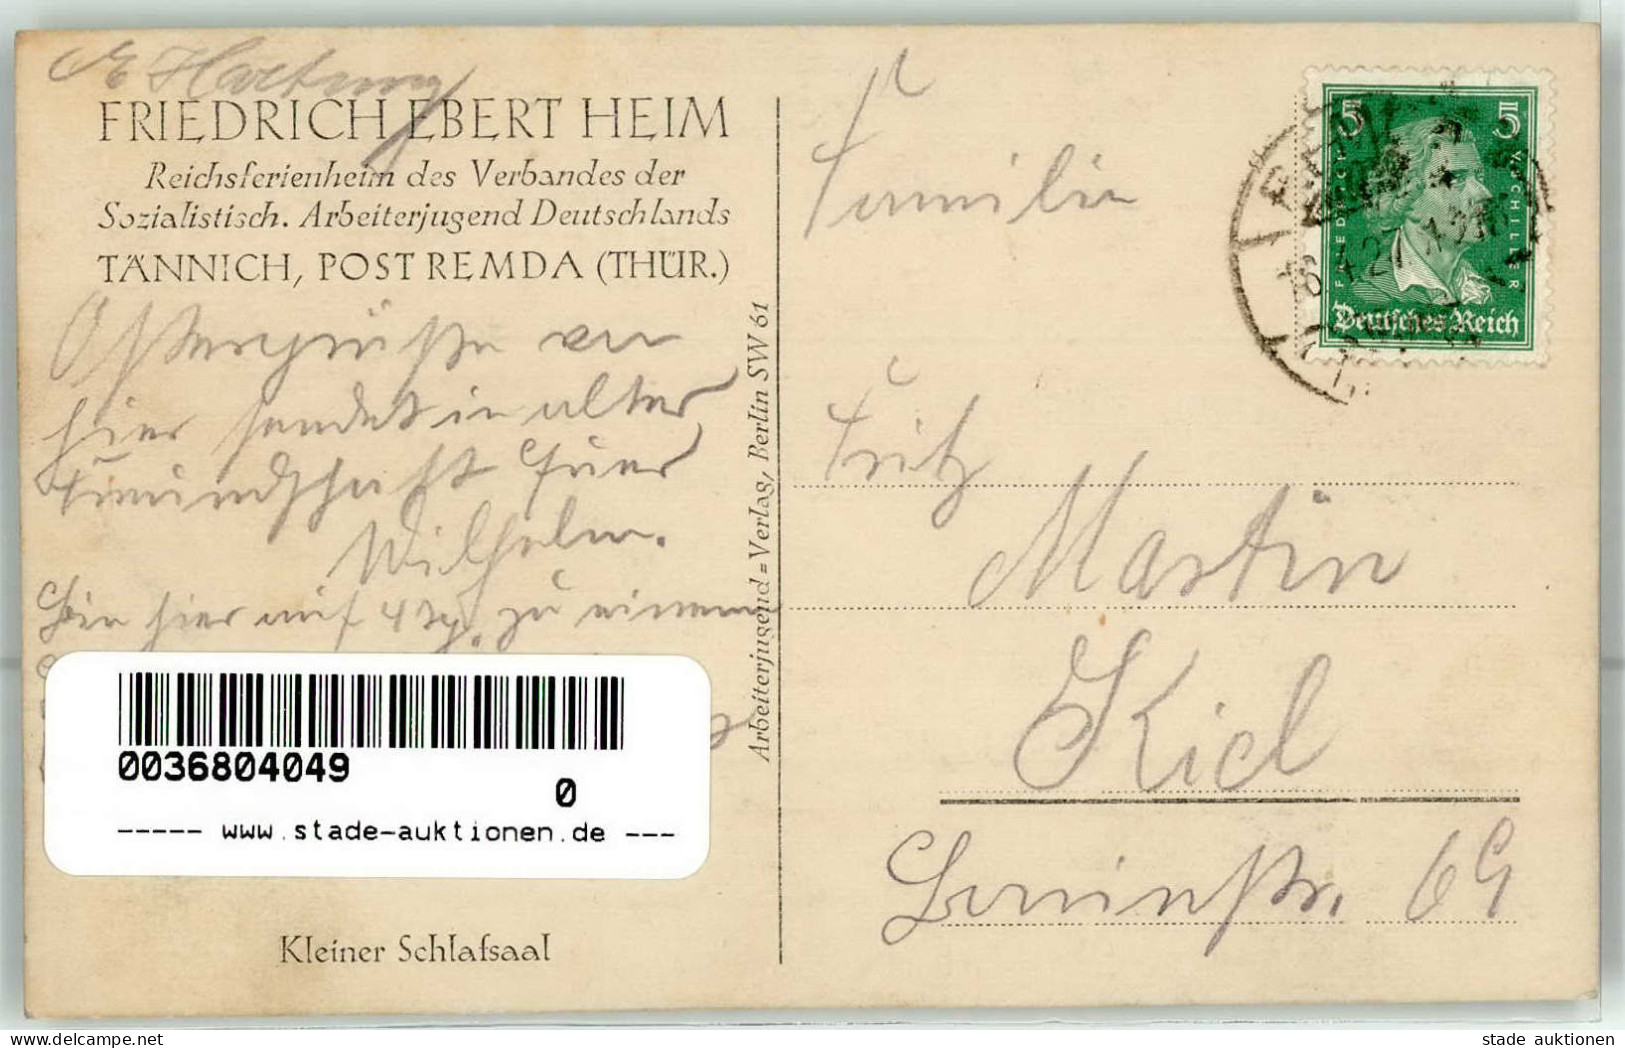 Hartung
FRIEDRICH EBERT HEIM
Reichsferienheim des Verbandes der
Sozialistisch. Arbeiterjugend Deutschlands
TÄNNICH, POST REMDA (THÜR.)
Ostergrüße von
hier sendet in alter
Freundschaft Euer
Wilhelm.
Bin hier auf 4 Tg. zu einem
0036804049
0
----- www.stade-auktionen.de ---
Kleiner Schlafsaal
Arbeiterjugend=Verlag, Berlin SW 61
5 5
FRIEDRICH V. SCHILLER
Deutsches Reich
Familie
Fritz
Martin
Kiel
69
stade auktionen
www.delcampe.net